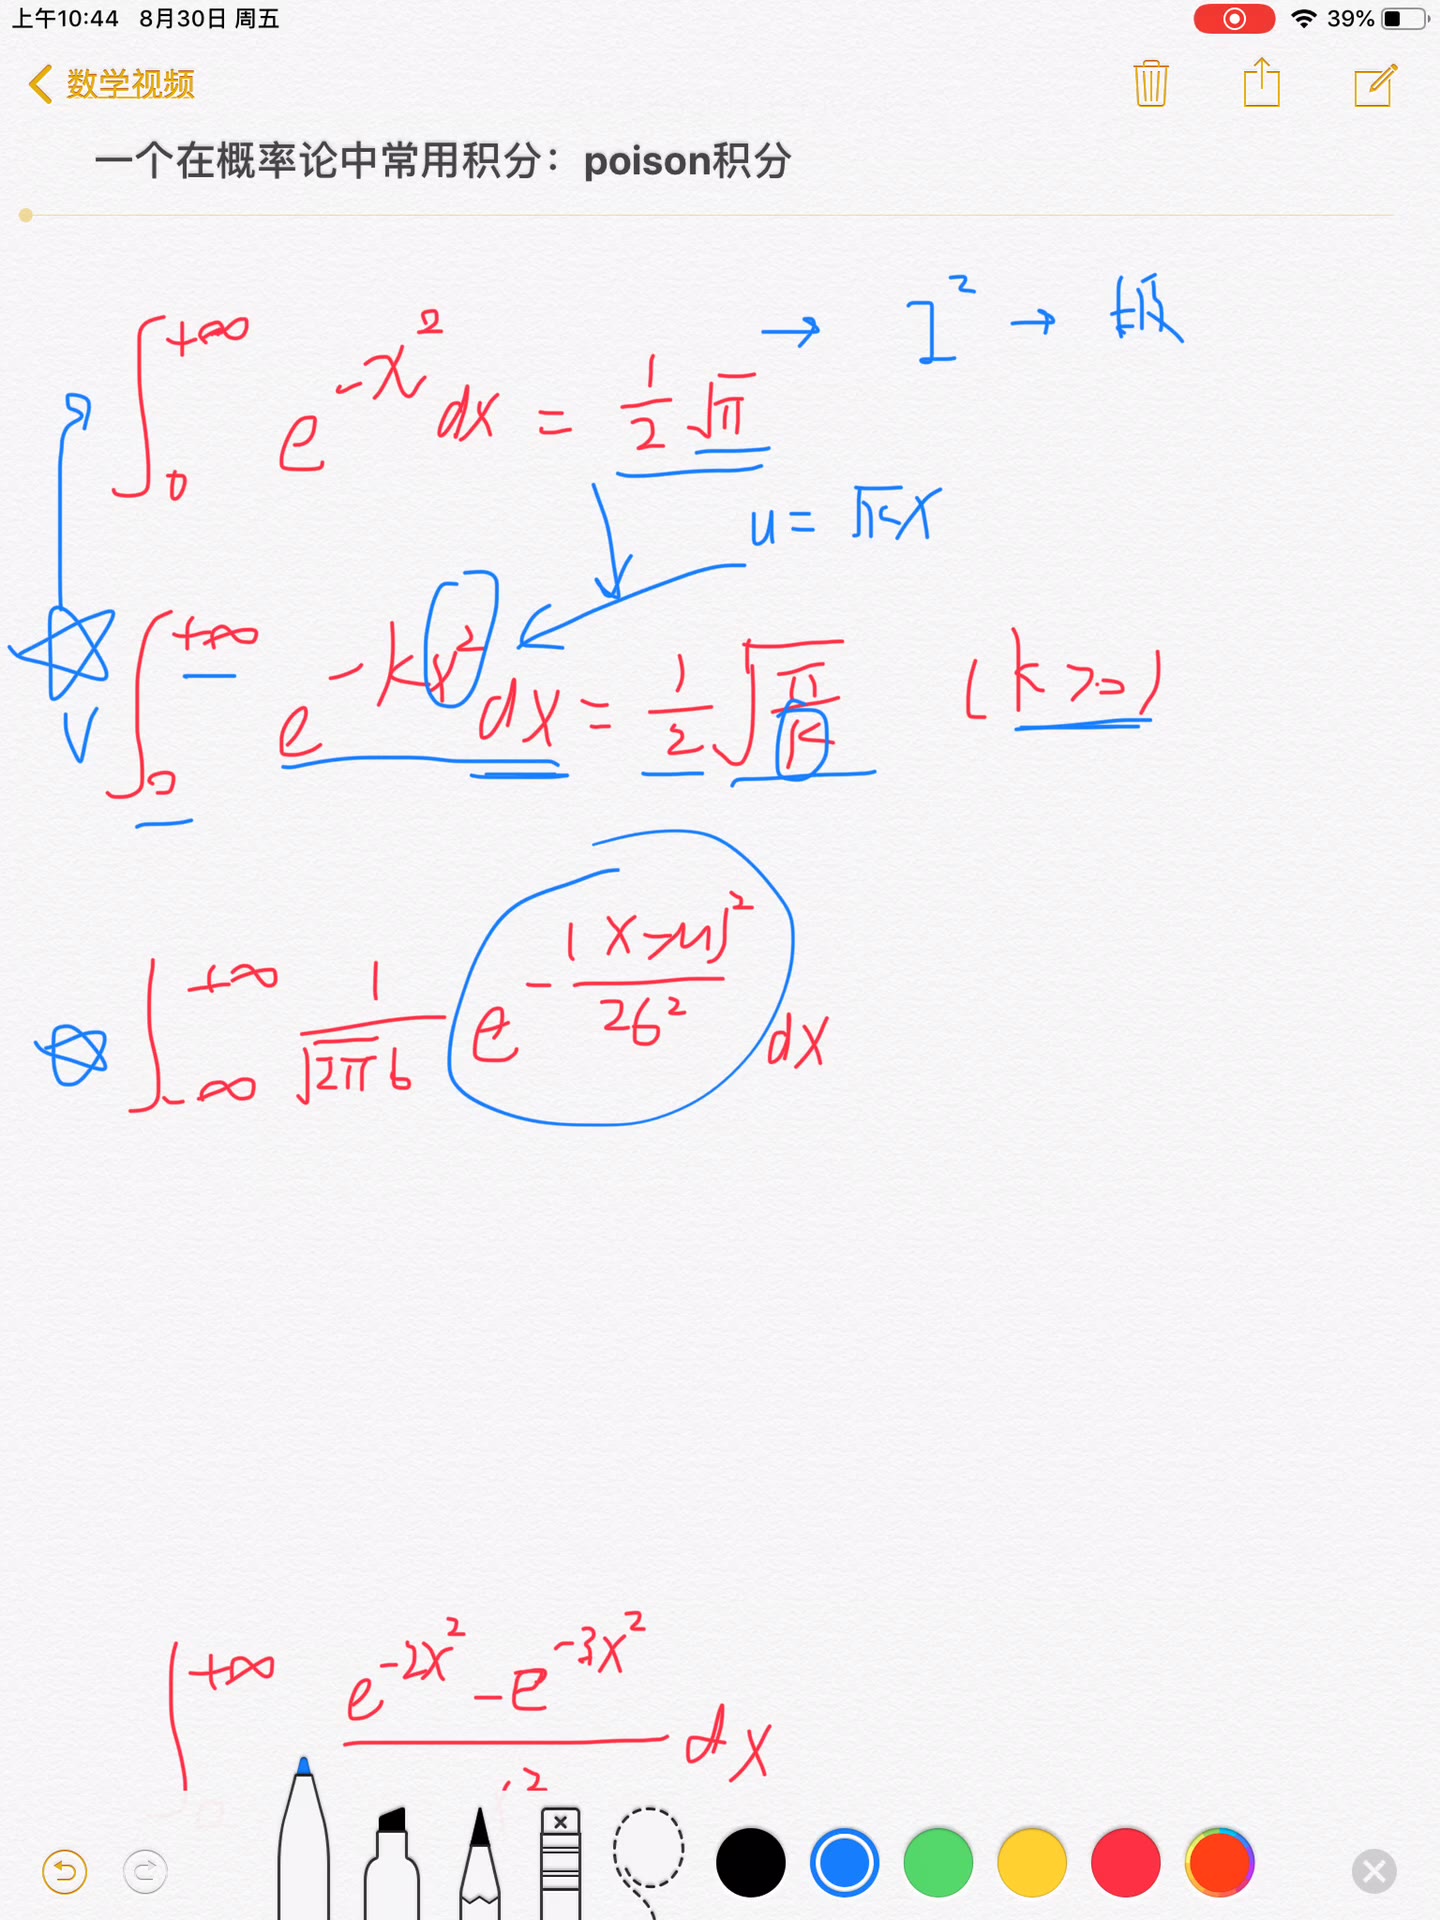 上午10:44 8月30日 周五 39%
数学视频
一个在概率论中常用积分：poison积分
∫₀^{+∞} e^{-x²} dx = 1/2 √π → I² →
u = √k x
∫₀^{+∞} e^{-kx²} dx = 1/2 √(π/k) (k>0)
∫_{-∞}^{+∞} 1/(√2π σ) e^{-(x-μ)²/2σ²} dx
∫^{+∞} (e^{-2x²} - e^{-3x²})/ ² dx